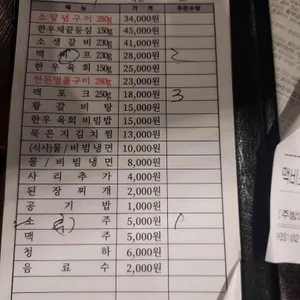 메뉴 가격 주문수량
소양념구미 280g 34,000원
한우채끝등심 150g 45,000원
소생갈비 230g 41,000원
맥 비프 230g 28,000원 2
한우육회 150g 25,000원
한돈명품구미 280g 23,000원
맥포크 250g 18,000원 3
왕갈비탕 15,000원
한우육회비빔밥 15,000원
묵은지김치찜 13,000원
(식사)물/비빔냉면 10,000원
물/비빔냉면 8,000원
사리추가 4,000원
된장찌개 2,000원
공기밥 1,000원
소주 5,000원 1
맥주 5,000원
청하 6,000원
음료수 2,000원